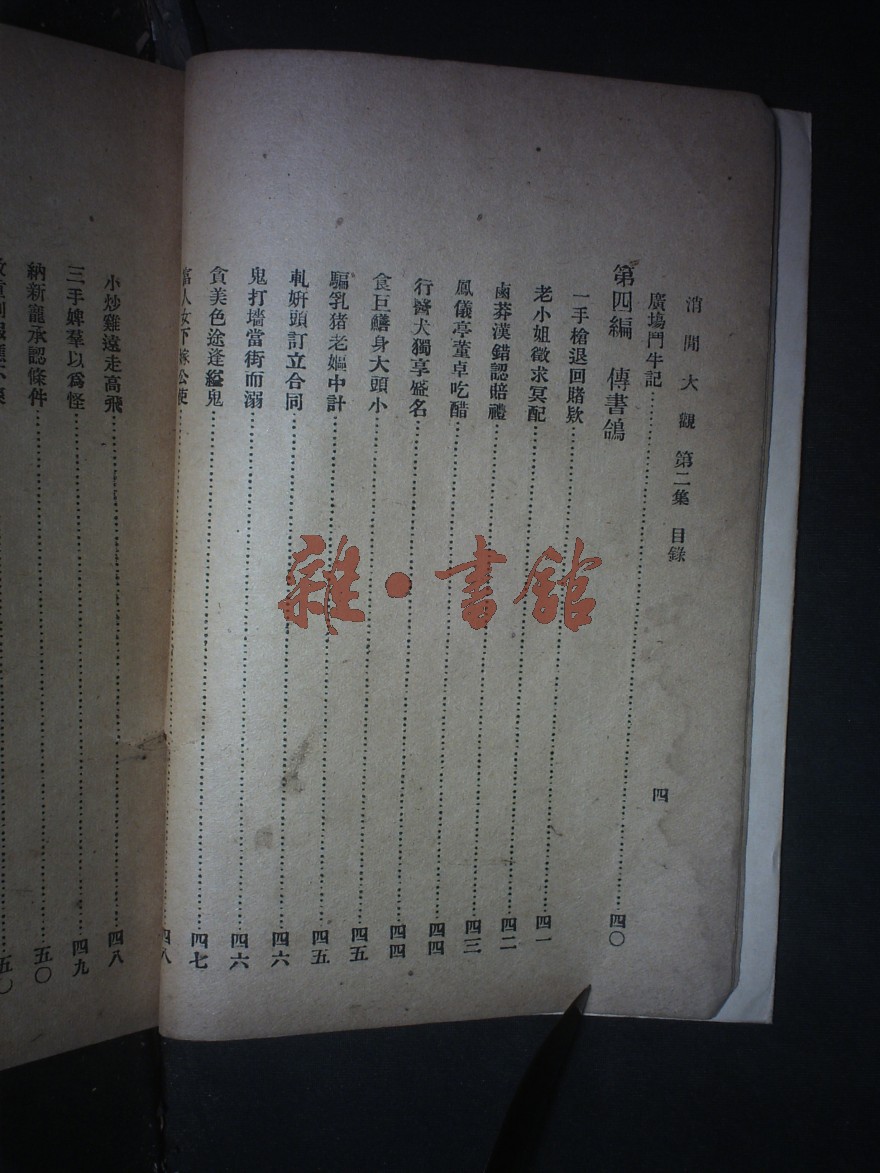 消閒大觀 第二集 目錄 四
廣場鬥牛記 四〇
第四編 傳書鴿
一手槍退回賭欵 四一
老小姐徵求冥配 四二
鹵莽漢錯認賠禮 四三
鳳儀亭董卓吃醋 四四
行醫犬獨享盛名 四四
食巨鱔身大頭小 四五
騙乳猪老嫗中計 四五
軋姘頭訂立合同 四六
鬼打墻當街而溺 四六
貪美色途逢縊鬼 四七
人女下嫁公使 四八
小炒雞遠走高飛 四八
三手婢羣以爲怪 四九
納新寵承認條件 五〇
五〇
雜·書館